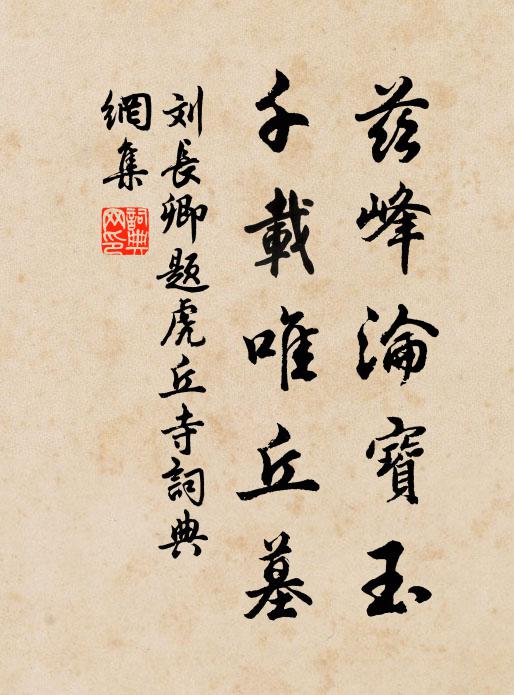 茲峰淪寶玉
千載唯丘墓
刘長卿題虎丘寺詞典
網集
詞典網印